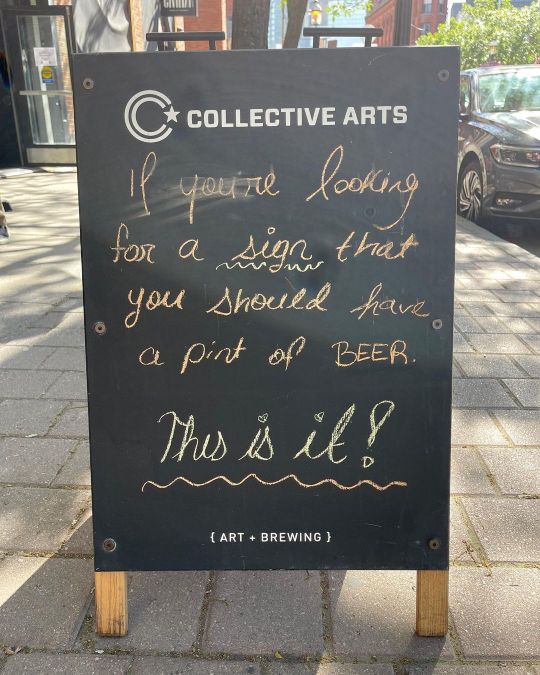 COLLECTIVE ARTS
If you're looking
for a sign that
you should have
a pint of BEER.
This is it!
{ ART + BREWING }